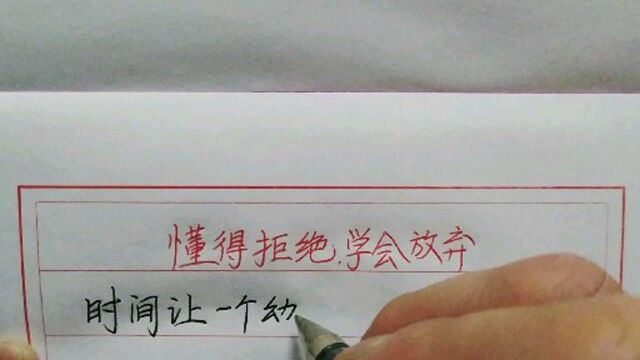 懂得拒绝,学会放弃
时间让一个幼